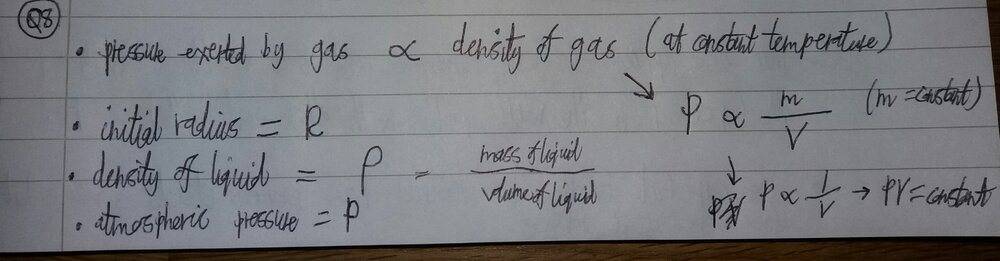 Q8
• pressure exerted by gas ∝ density of gas (at constant temperature)
↘ P ∝ m/V (m = constant)
• initial radius = R
• density of liquid = ρ = mass of liquid / volume of liquid
↓ P ∝ 1/V → PV = constant
• atmospheric pressure = P